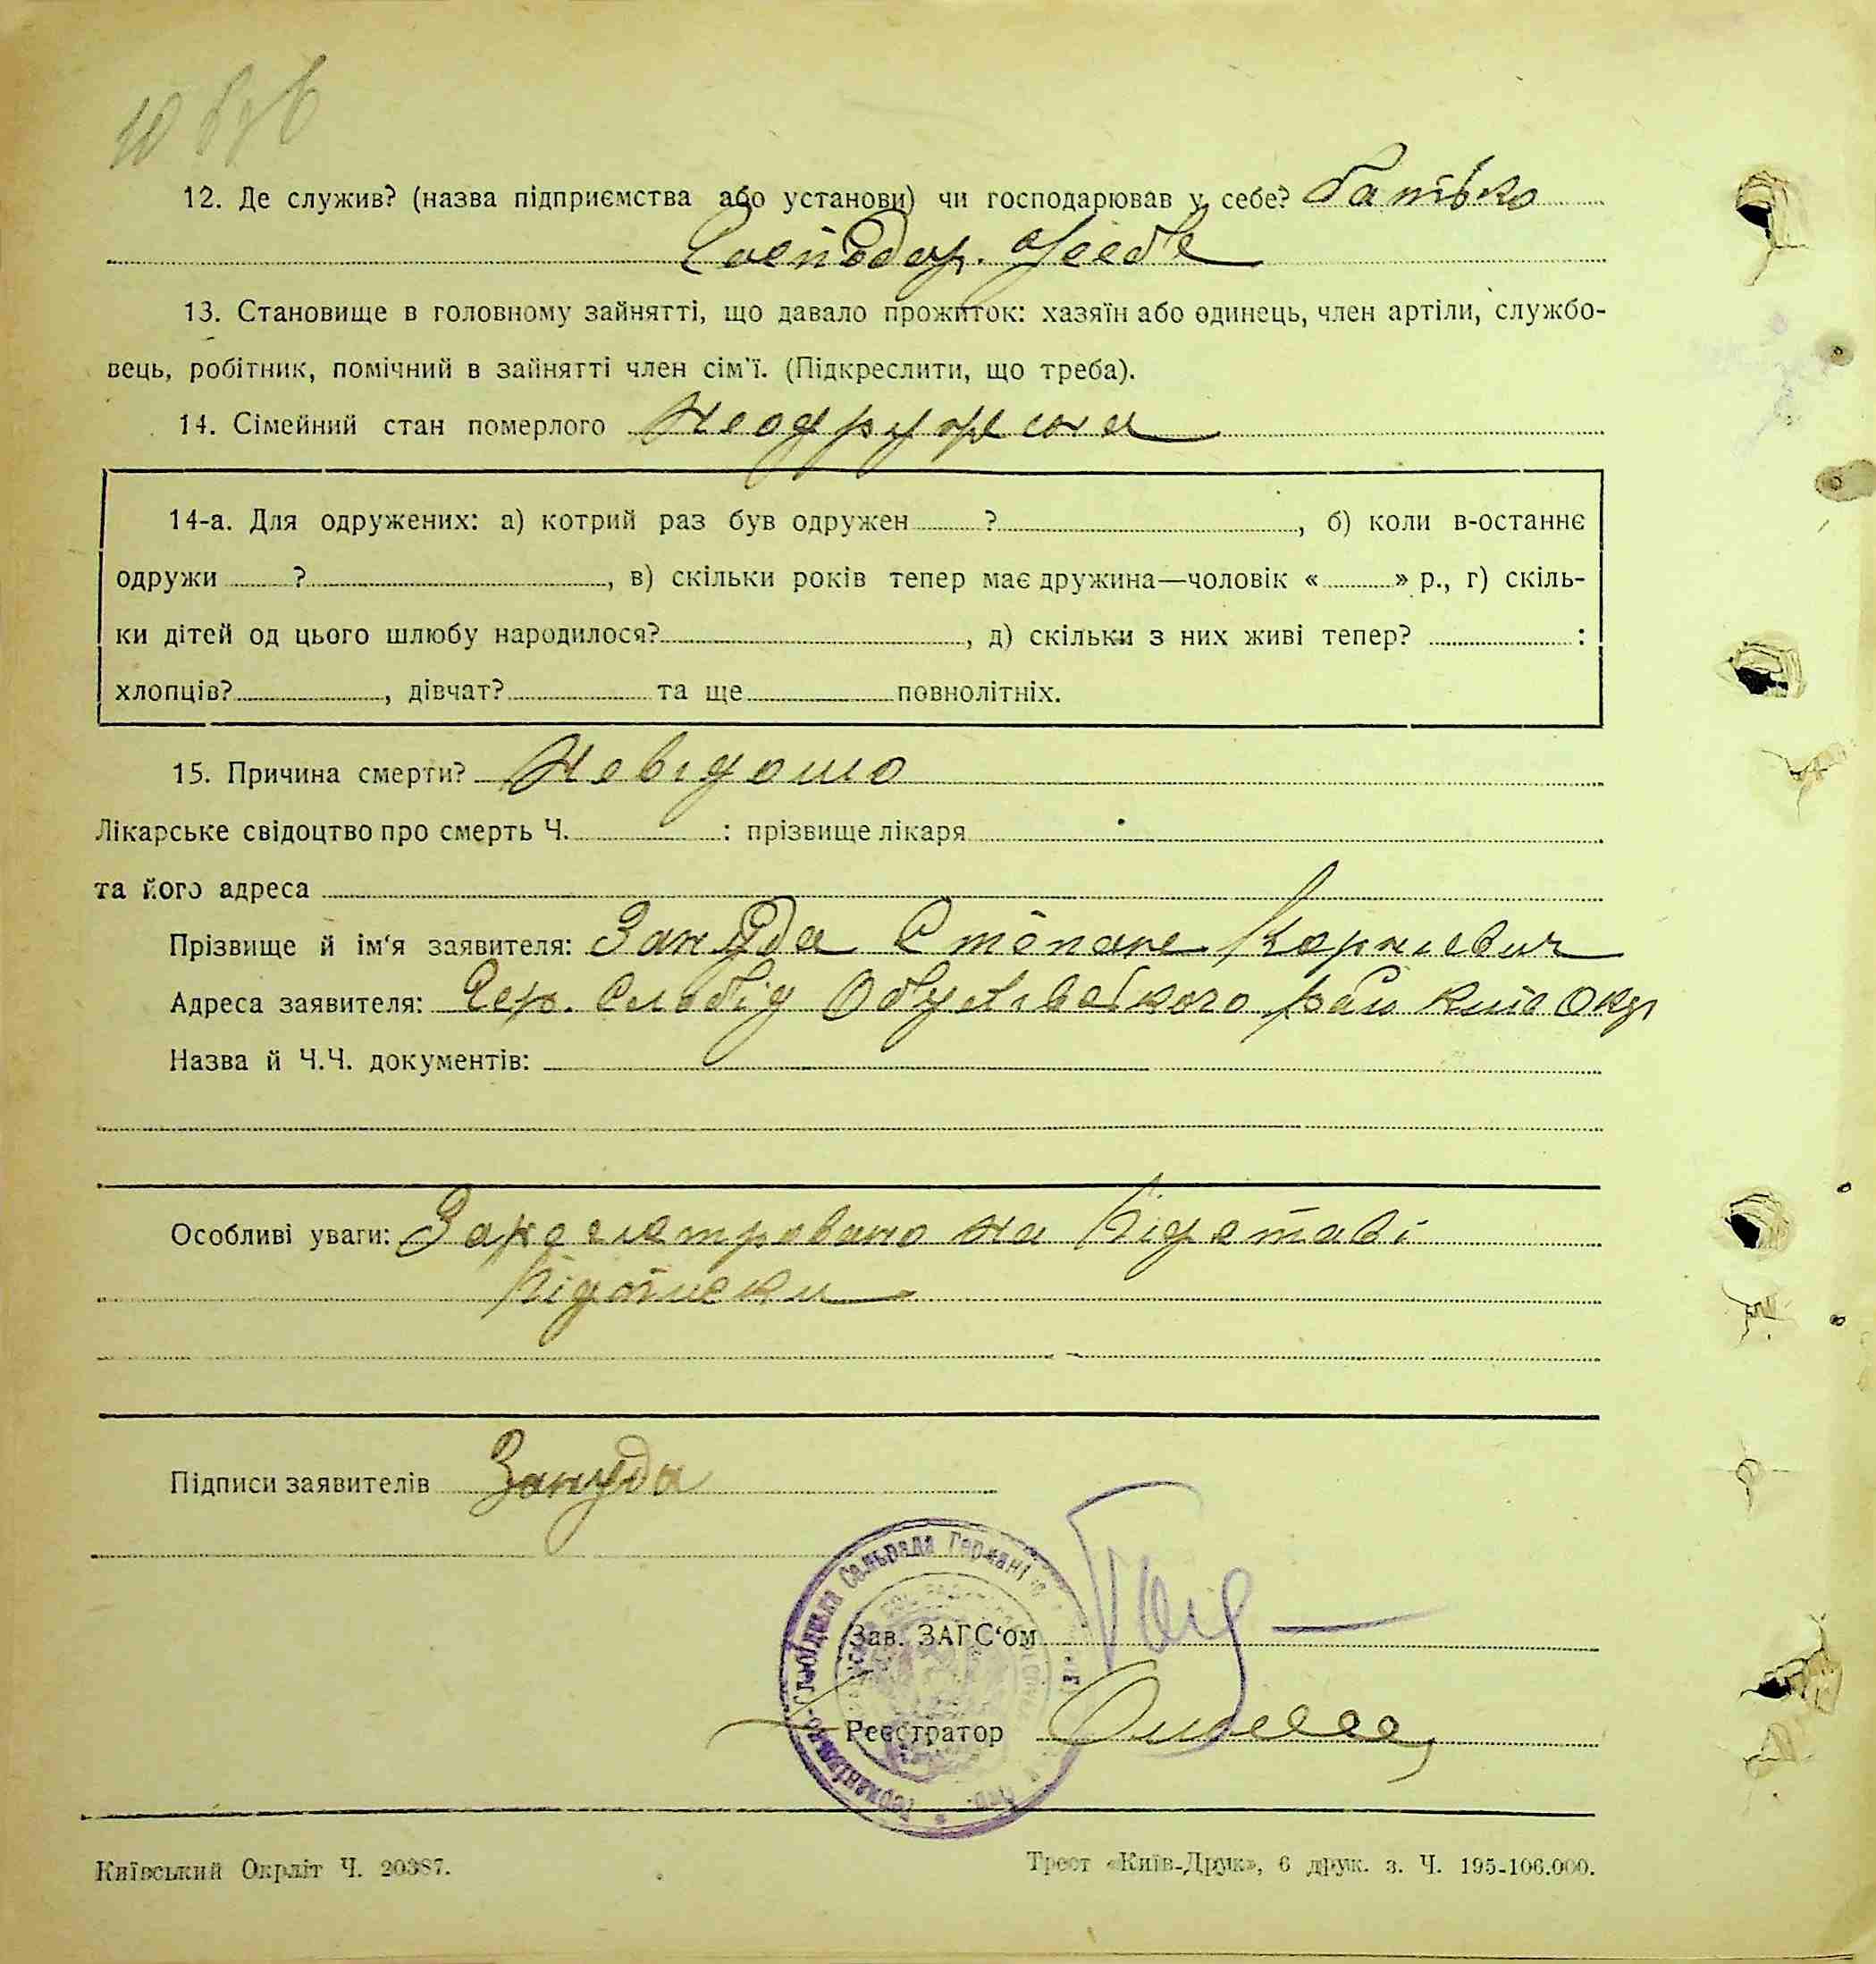 12. Де служив? (назва підприємства або установи) чи господарював у себе? батько
Господар. у себе
13. Становище в головному зайнятті, що давало прожиток: хазяїн або одинець, член артіли, службо-
вець, робітник, помічний в зайнятті член сім'ї. (Підкреслити, що треба).
14. Сімейний стан померлого неодружена
14-а. Для одружених: а) котрий раз був одружен ? , б) коли в-останнє
одружи ? , в) скільки років тепер має дружина—чоловік « » р., г) скіль-
ки дітей од цього шлюбу народилося? , д) скільки з них живі тепер? :
хлопців? , дівчат? та ще повнолітніх.
15. Причина смерти? Невідомо
Лікарське свідоцтво про смерть Ч. : прізвище лікаря
та його адреса
Прізвище й ім'я заявителя: Зануда Степан Корнієвич
Адреса заявителя: Гер. Слобід Обухівського рай Київ Окр
Назва й Ч.Ч. документів:
Особливі уваги: Зареєстровано на підставі
підписки
Підписи заявителів Зануда
Зав. ЗАГС'ом
Реєстратор
Германівсько-Слобідська Сельрада
Київський Окрліт Ч. 20387.
Трест «Київ-Друк», 6 друк. з. Ч. 195-106.000.